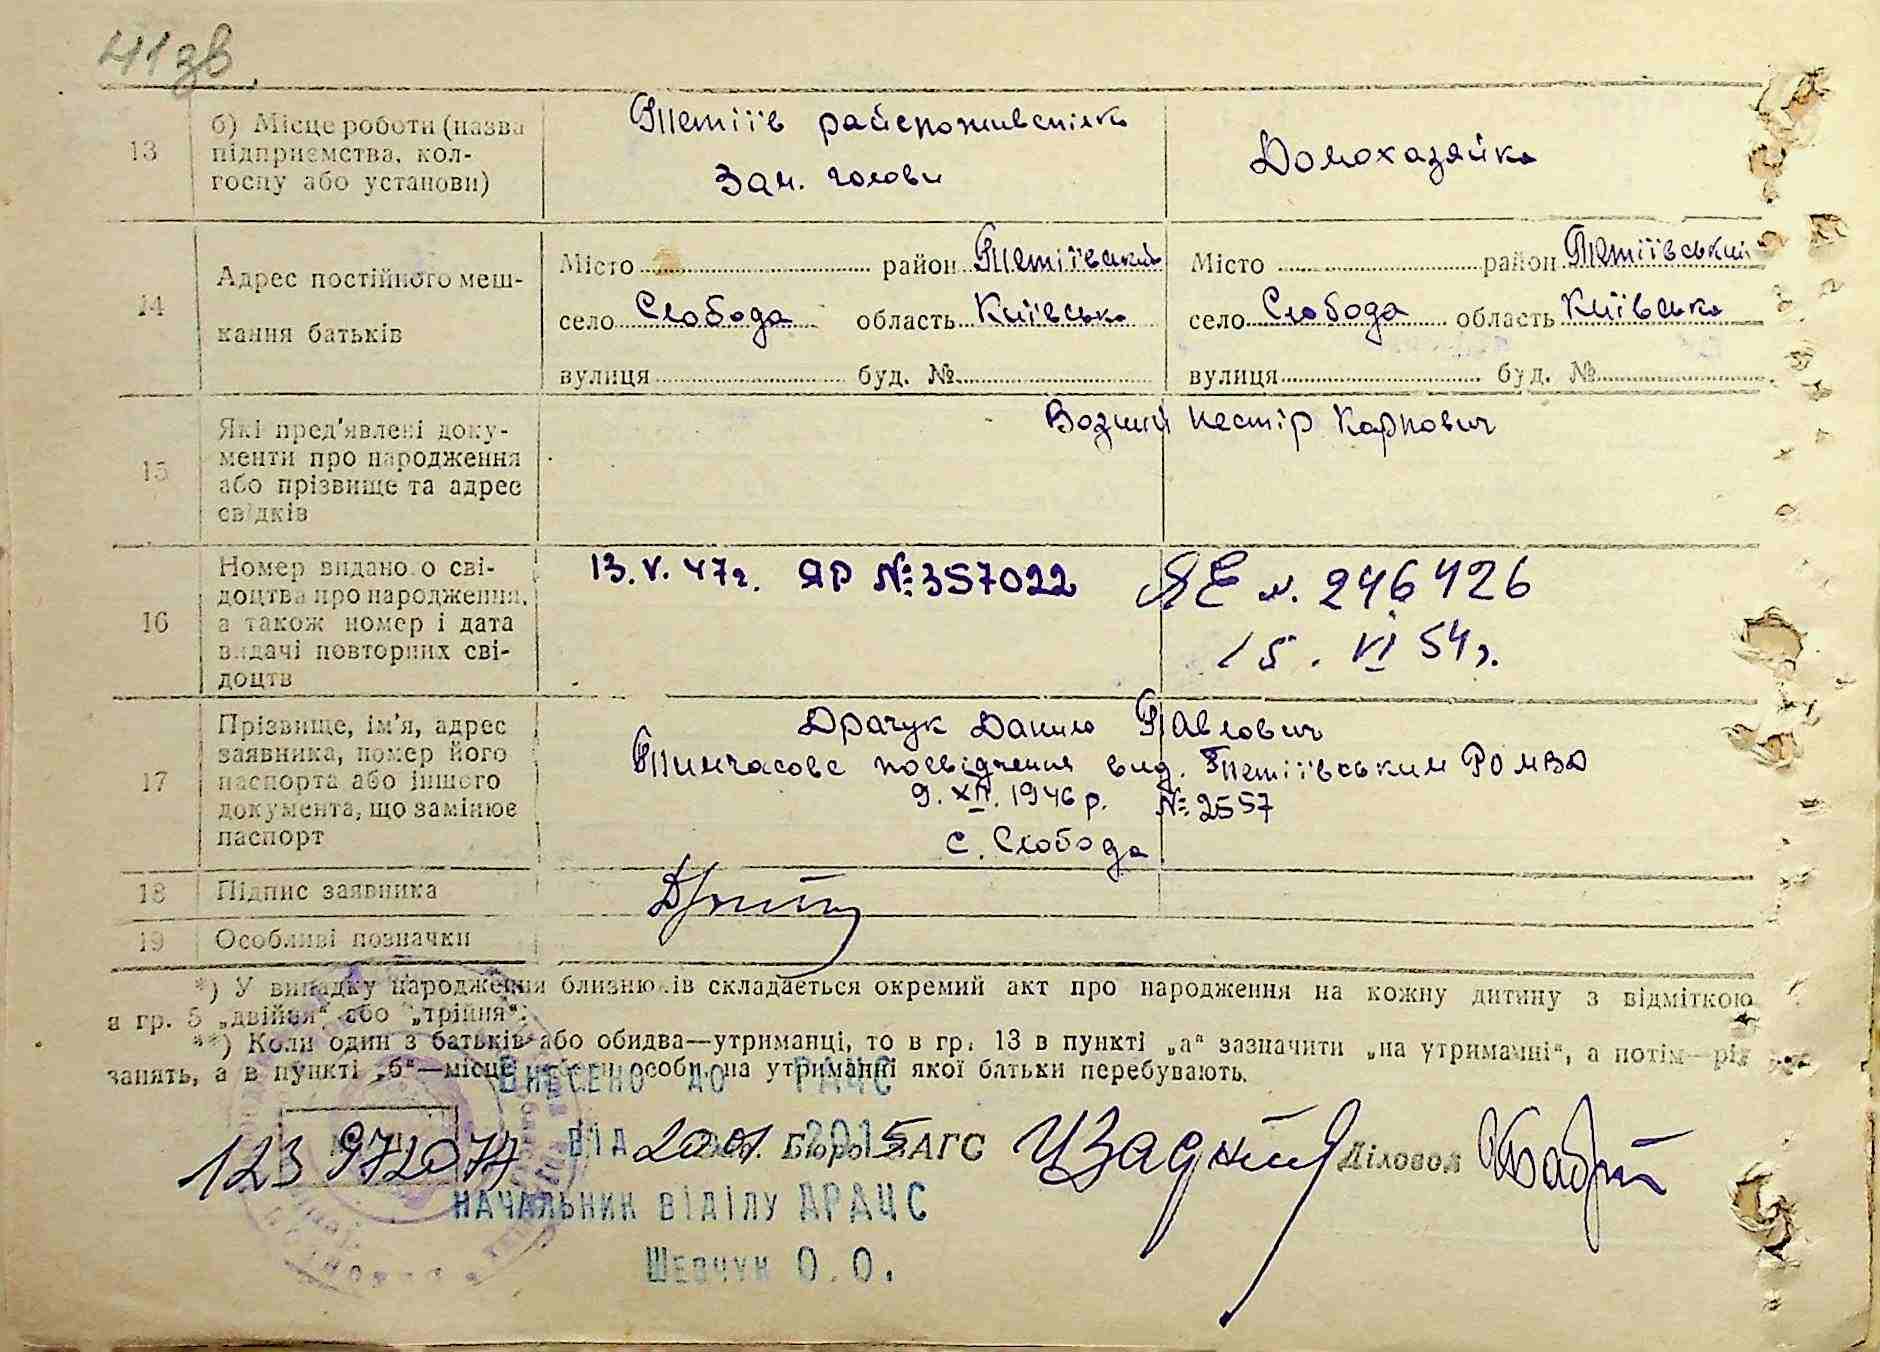 41зв
13
б) Місце роботи (назва
підприємства, кол-
госпу або установи)
Тетіїв райспоживспілка
Зам. голови
Домохазяйка
14
Адрес постійного меш-
кання батьків
Місто район Тетіївський
село Слобода область Київська
вулиця буд. №
Місто район Тетіївський
село Слобода область Київська
вулиця буд. №
15
Які пред'явлені доку-
менти про народження
або прізвище та адрес
свідків
Нестір Карпович
16
Номер виданого сві-
доцтва про народження,
а також номер і дата
видачі повторних сві-
доцтв
13.V.47г. ЯР №357022
ЯЕ N. 246426
15. VI 54г.
17
Прізвище, ім'я, адрес
заявника, номер його
паспорта або іншого
документа, що замінює
паспорт
Драчук Данило Павлович
Тимчасове посвідчення вид. Тетіївським РОМВД
9.XII.1946р. №2557
с. Слобода
18
Підпис заявника
19
Особливі позначки
*) У випадку народження близнюків складається окремий акт про народження на кожну дитину з відміткою
в гр. 5 „двійня“ або „трійня“.
**) Коли один з батьків або обидва—утриманці, то в гр. 13 в пункті „а“ зазначити „на утриманні“, а потім—рід
занять, а в пункті „б“—місце особи, на утриманні якої батьки перебувають.
Внесено до РАЦС
123 972077
від 20.01.2015
Бюро ЗАГС
Діловод
Начальник відділу ДРАЦС
Шевчук О.О.